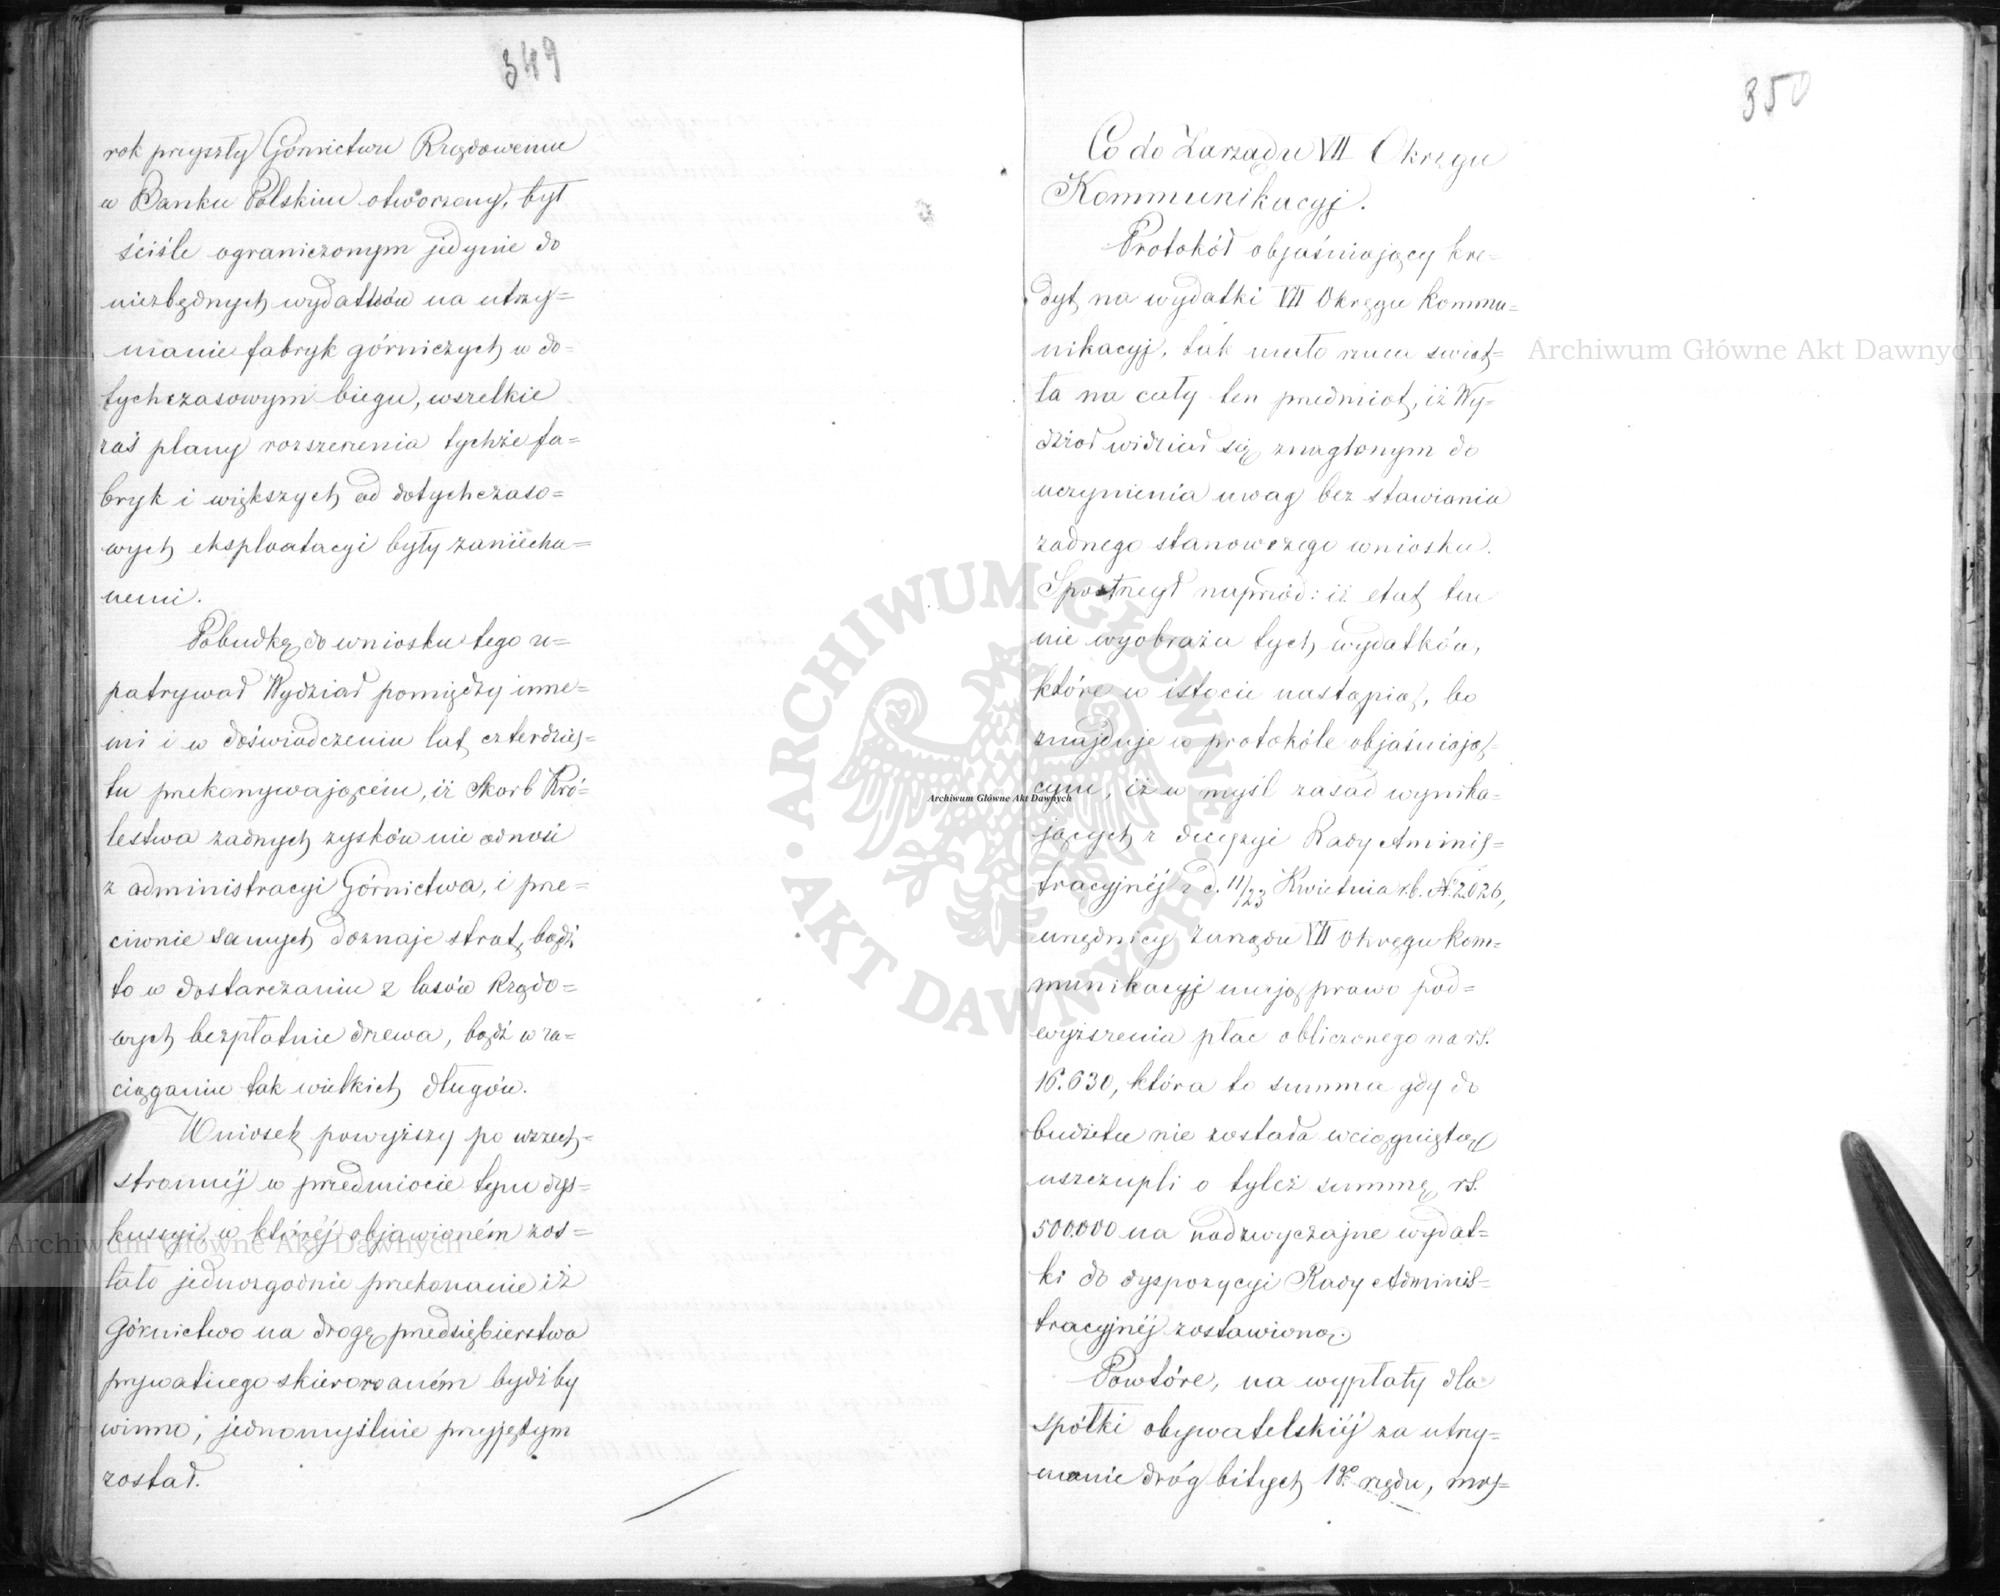 349
rok przyszły Górnictwu Rządowemu
w Banku Polskim otworzony, był
ściśle ograniczonym jedynie do
niezbędnych wydatków na utrzy=
manie fabryk górniczych w do=
tychczasowym biegu, wszelkie
zaś plany rozszerzenia tychże fa=
bryk i większych od dotychczaso=
wych eksploatacyi były zaniecha=
nemi.
Pobudkę do wniosku tego u=
patrywał Wydział pomiędzy inne=
mi i w doświadczeniu lat czterdzies=
tu przekonywającém, iż Skarb Kró=
lestwa żadnych zysków nie odnosi
z administracyi Górnictwa, i prze=
ciwnie samych doznaje strat, bądź
to w dostarczaniu z lasów Rządo=
wych bezpłatnie drzewa, bądź w za=
ciąganiu tak wielkich długów.
Wniosek powyższy po wszech=
stronnéj w przedmiocie tym dys=
kussyi, w któréj objawioném zos=
tało jednozgodnie przekonanie iż
Górnictwo na drogę przedsiębierstwa
prywatnego skierowaném bydźby
winno; jednomyślnie przyjętym
został.
350
Co do Zarządu VII Okręgu
Kommunikacyj.
Protokół objaśniający kre=
dyt na wydatki VII Okręgu kommu=
nikacyj, tak mało rzuca świat=
ła na cały ten przedmiot, iż Wy=
dział widział się znaglonym do
uczynienia uwag bez stawiania
żadnego stanowczego wniosku.
Spostrzegł naprzód: iż etat ten
nie wyobraża tych wydatków,
które w istocie nastąpią, bo
znajduje w protokóle objaśniają=
cym, iż w myśl zasad wynika=
jących z decyzyi Rady Aminis=
tracyjnéj z d. 11/23 Kwietnia r.b. No 2026,
urzędnicy Zarządu VII Okręgu kom=
munikacyj mają prawo pod=
wyższenia płac obliczonego na rS.
16.630, która to summa gdy do
budżetu nie została wciągniętą
uszczupli o tyleż summę rS.
500.000 na nadzwyczajne wydat=
ki do dyspozycyi Rady Adminis=
tracyjnéj zostawioną.
Powtóre, na wypłaty dla
spółki obywatelskiéj za utrzy=
manie dróg bitych 1go rzędu, mos=
Archiwum Główne Akt Dawnych
Archiwum Główne Akt Dawnych
Archiwum Główne Akt Dawnych
ARCHIWUM GŁÓWNE AKT DAWNYCH